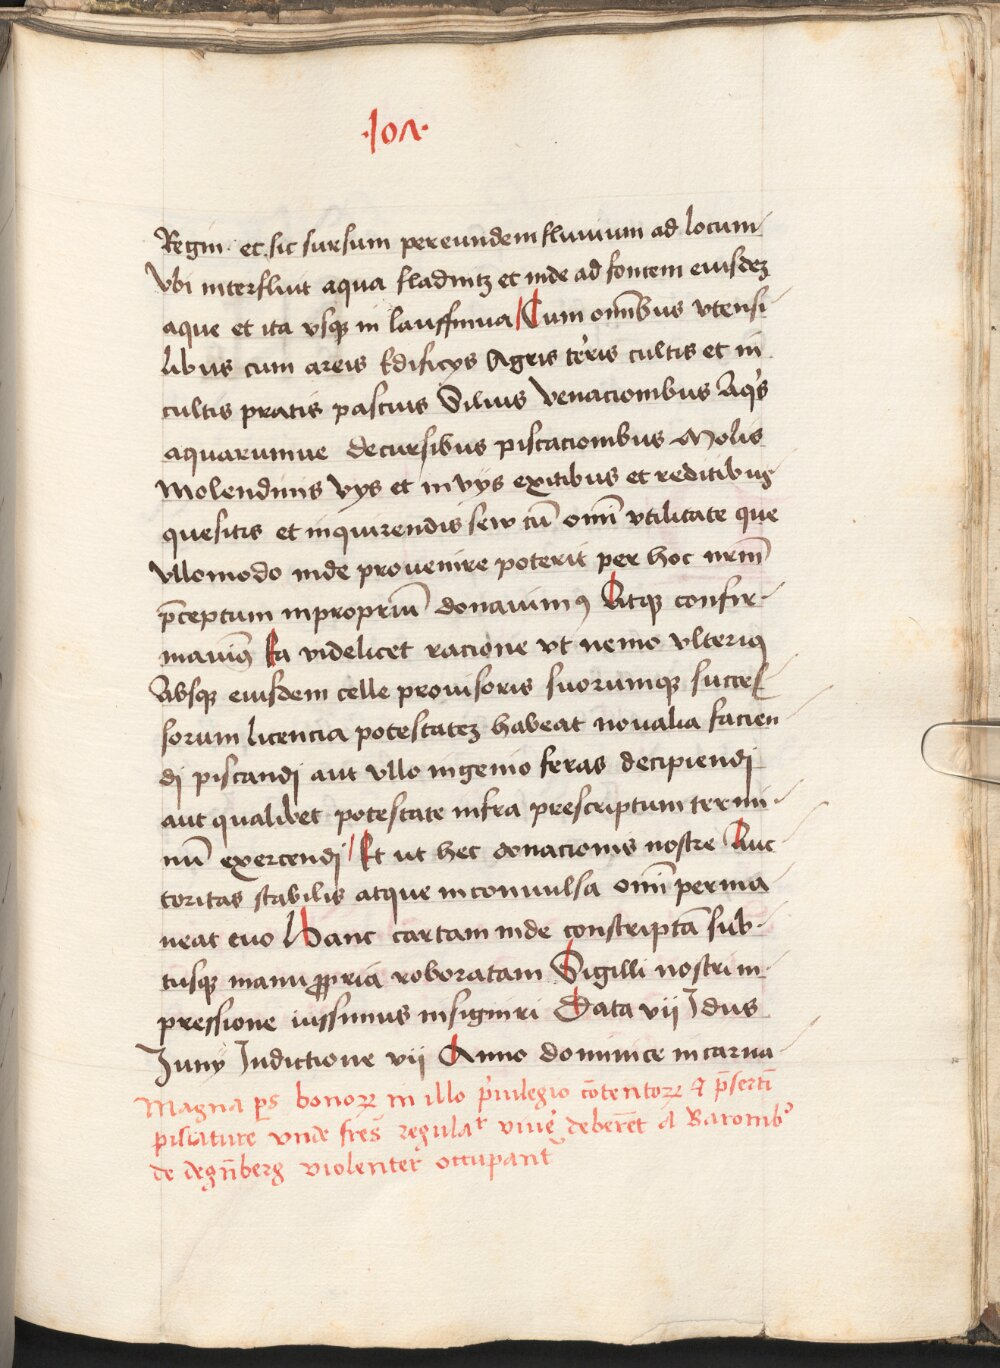 ·107·
Regin· et sic sursum per eundem fluuium ad locum
vbi interfluit aqua fladnitz et inde ad fontem eiusdez
aque et ita vsqꝫ in lauffniua Cum om̅ibus vtensi
libus cum areis Edificys Agris te᷒ris cultis et in
cultis pratis pascuis Siluis venacionibus Aq᷒s
aquarumue decursibus piscacionibus Molis
Molendinis vys et invys exitibus et reditibus
quesitis et inquirendis sew cu̅ om̅i vtilitate que
vllomodo inde prouenire poterit per hoc nrm̅
p̅ceptum in propriu̅ donauimꝰ Atqꝫ confir
mauimꝰ Ea videlicet racione vt nemo vlteriꝰ
Absqꝫ eiusdem celle prouisoris suorumqꝫ succes
sorum licencia potestatez habeat noualia facien
dj piscandj aut vllo ingenio feras decipiendj
aut qualibet potestate infra prescriptum termi
nu̅ exercendj Et ut hec donacionis nostre Auc
toritas stabilis atque inconuulsa om̅i perma
neat euo Hanc cartam inde conscripta̅ sub
tusqꝫ manu ꝓpria roboratam Sigilli nostri im
pressione iussimus insigniri Data vij Idus
Juny Indictione vij Anno dominice incarna
Magna ps bonorꝝ in illo p᷒uilegio co̅tentorꝝ & p̅serti̅
pisscature vnde fres̅ regular viue᷒ debere̅t A Baronibꝰ
de degn̅berg violenter occupant᷒